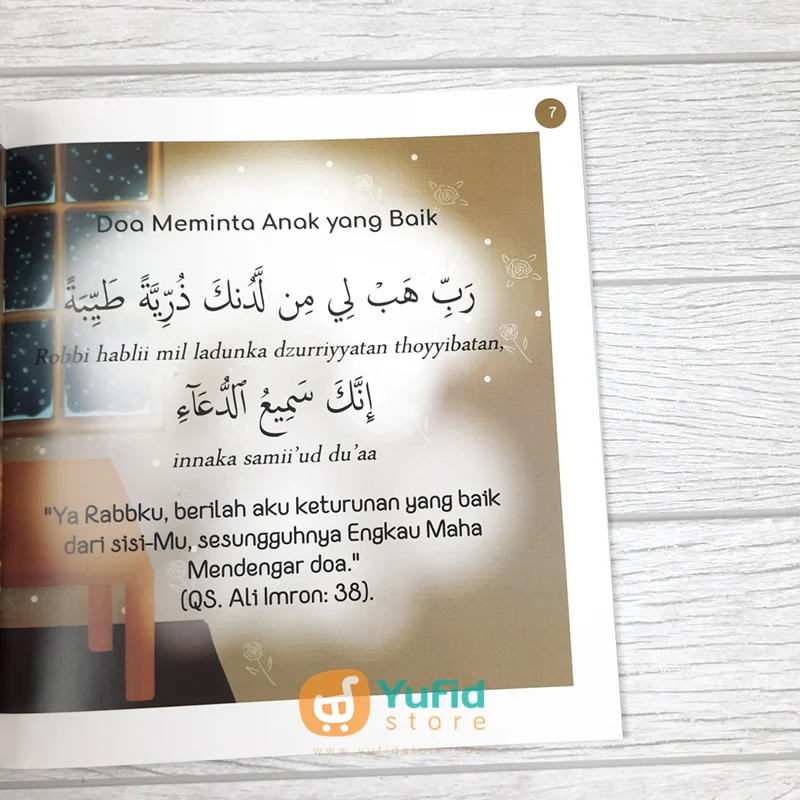 7
Doa Meminta Anak yang Baik
رَبِّ هَبْ لِي مِن لَّدُنكَ ذُرِّيَّةً طَيِّبَةً
Robbi hablii mil ladunka dzurriyyatan thoyyibatan,
إِنَّكَ سَمِيعُ ٱلدُّعَآءِ
innaka samii'ud du'aa
"Ya Rabbku, berilah aku keturunan yang baik
dari sisi-Mu, sesungguhnya Engkau Maha
Mendengar doa."
(QS. Ali Imron: 38).
Yufid
store
www.yufidstore.com